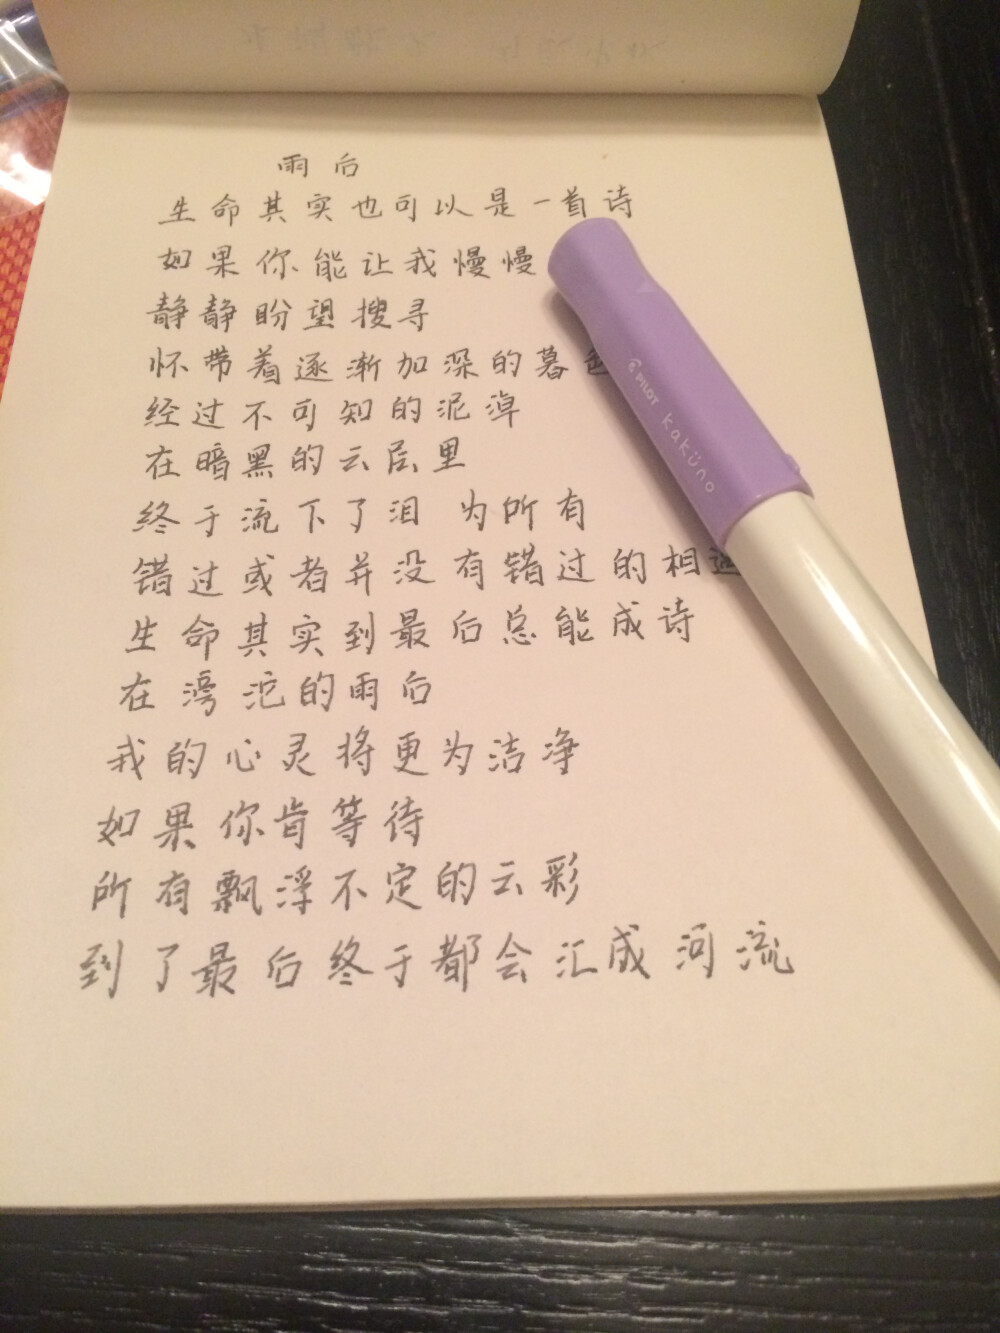 雨后
生命其实也可以是一首诗
如果你能让我慢慢
静静盼望搜寻
怀带着逐渐加深的暮色
经过不可知的泥淖
在暗黑的云层里
终于流下了泪 为所有
错过或者并没有错过的相遇
生命其实到最后总能成诗
在滂沱的雨后
我的心灵将更为洁净
如果你肯等待
所有飘浮不定的云彩
到了最后终于都会汇成河流
PILOT kaküno